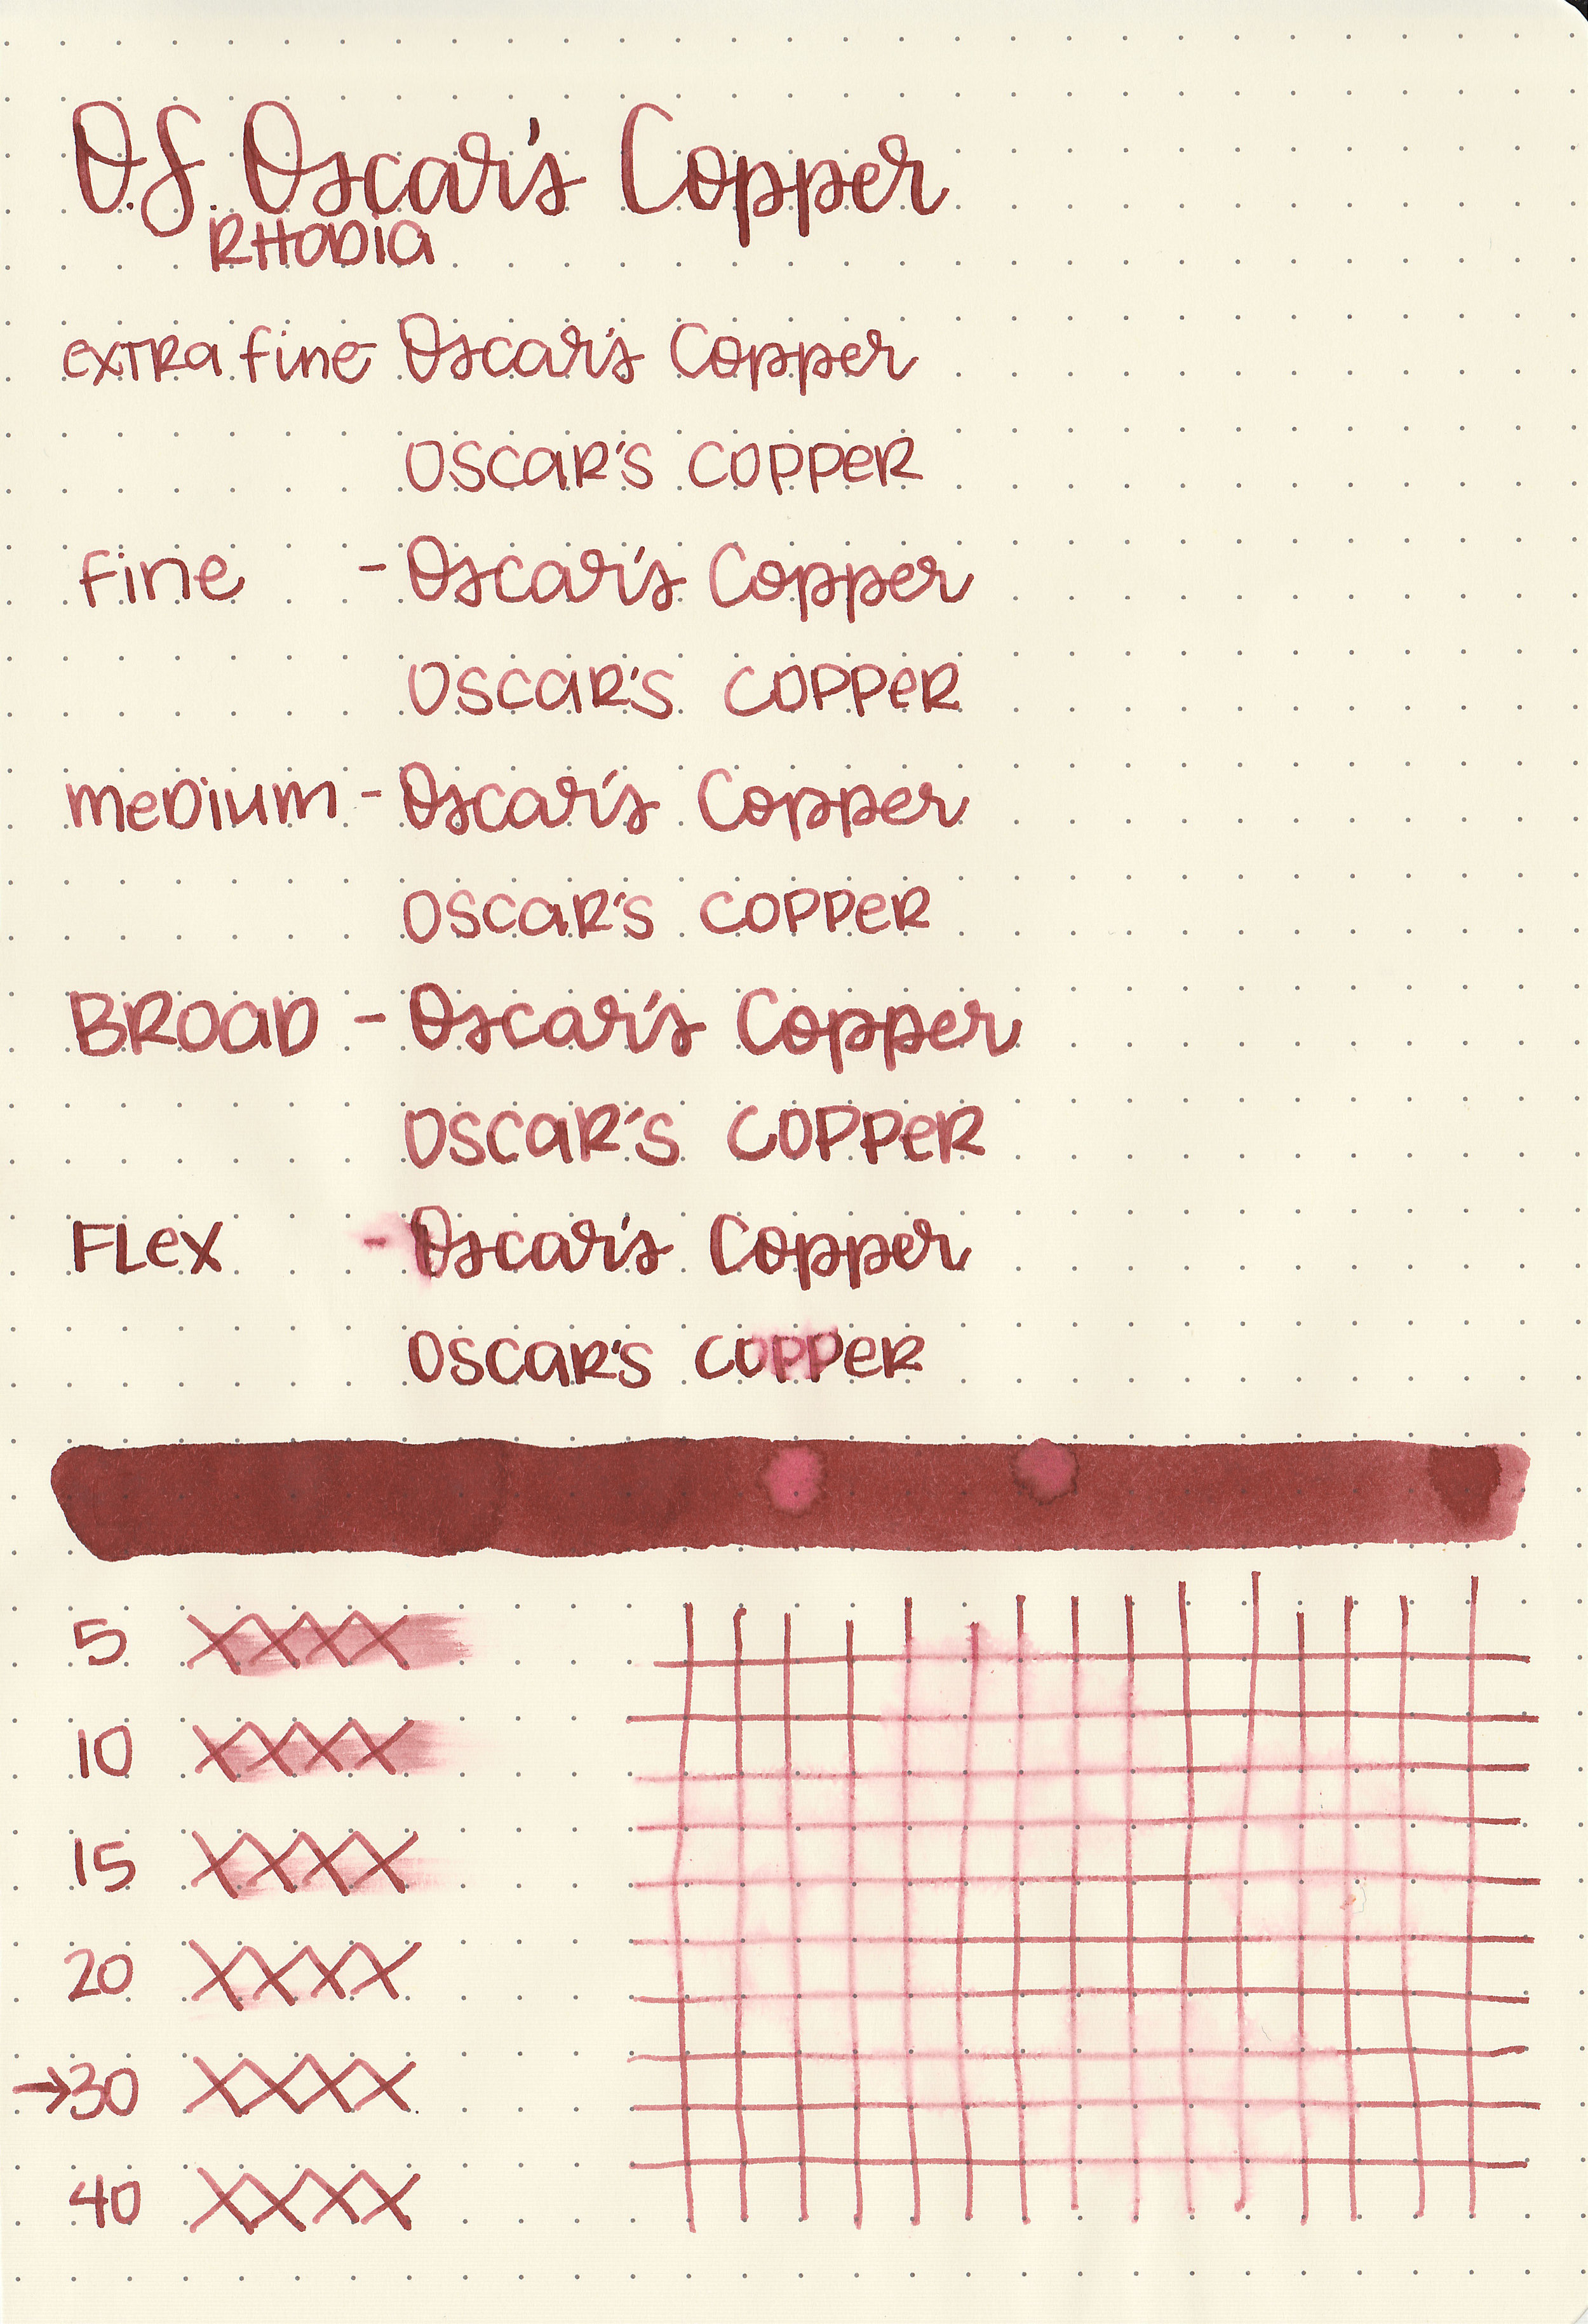 O.S. Oscar's Copper
RHODIA
extra fine Oscar's Copper
Oscar's Copper
fine - Oscar's Copper
Oscar's Copper
medium - Oscar's Copper
Oscar's Copper
BROAD - Oscar's Copper
Oscar's Copper
Flex - Oscar's Copper
Oscar's Copper
5 XXXX
10 XXXX
15 XXXX
20 XXXX
→30 XXXX
40 XXXX